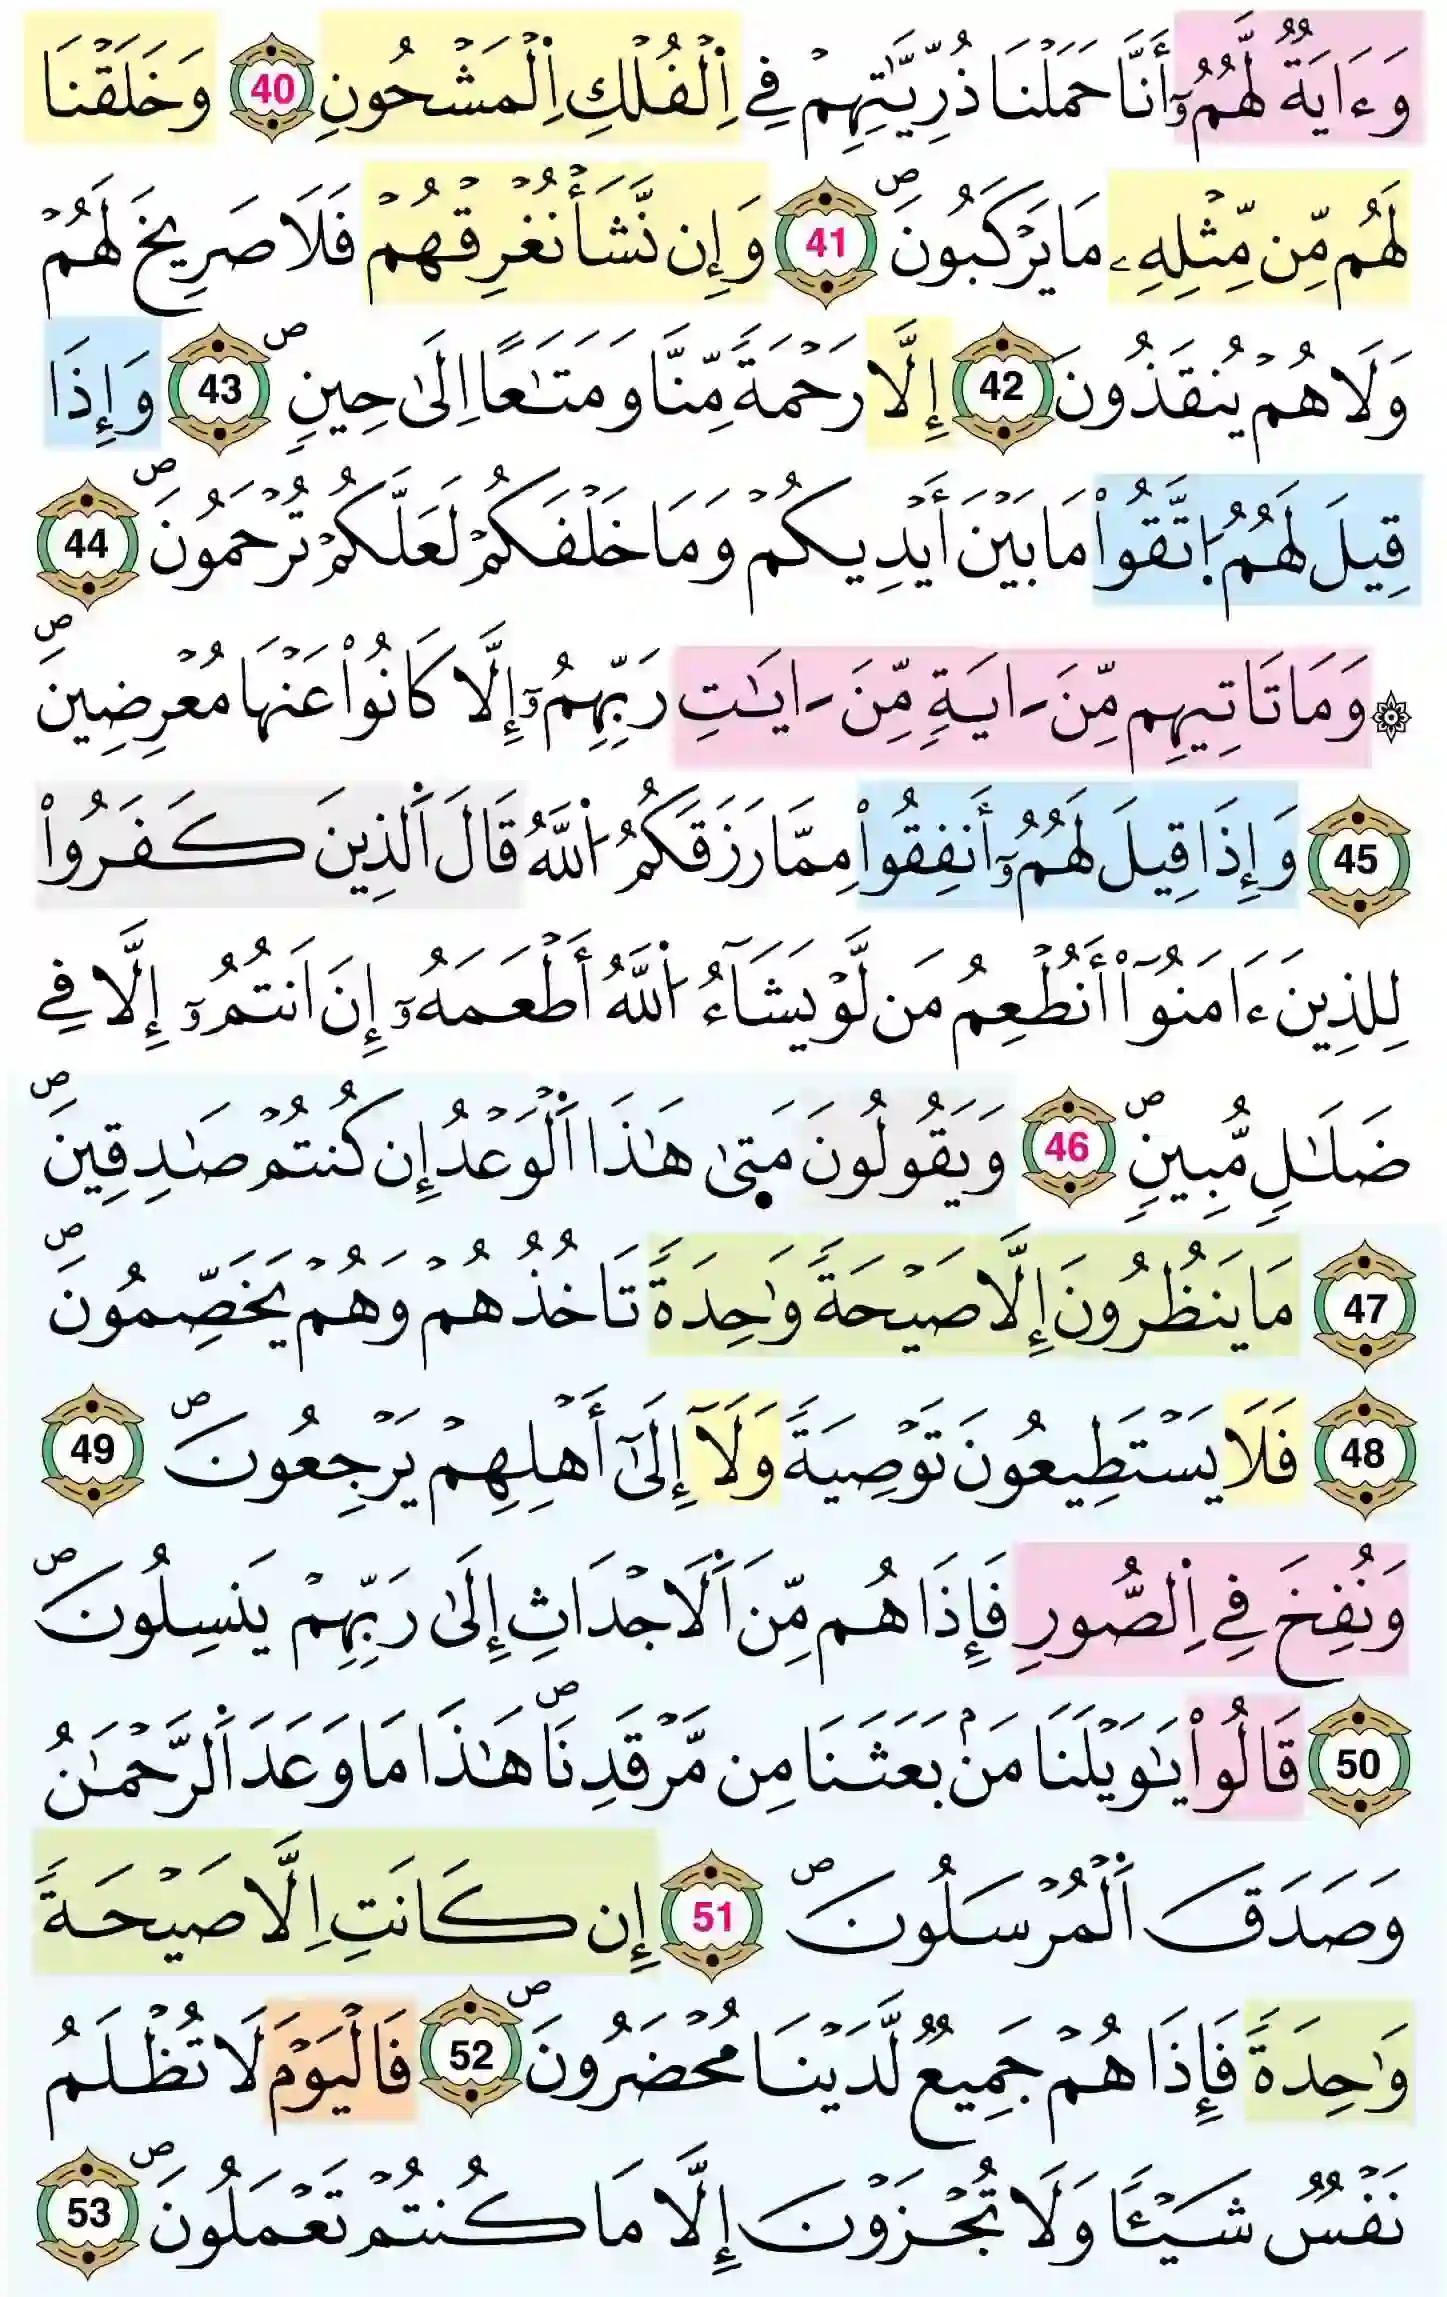 وَءَايَةٞ لَّهُمُۥٓ أَنَّا حَمَلْنَا ذُرِّيَّٰتِهِمْ فِي اِ۬لْفُلْكِ اِ۬لْمَشْحُونِ 40 وَخَلَقْنَا
لَهُم مِّن مِّثْلِهِۦ مَا يَرْكَبُونَۖ 41 وَإِن نَّشَأْ نُغْرِقْهُمْ فَلَا صَرِيخَ لَهُمْ
وَلَا هُمْ يُنقَذُونَ 42 إِلَّا رَحْمَةٗ مِّنَّا وَمَتَٰعاً اِلَىٰ حِينٖۖ 43 وَإِذَا
قِيلَ لَهُمُ اُ۪تَّقُواْ مَا بَيْنَ أَيْدِيكُمْ وَمَا خَلْفَكُمْ لَعَلَّكُمْ تُرْحَمُونَۖ 44
۞ وَمَا تَاتِيهِم مِّنَ اٰيَةٖ مِّنَ اٰيَٰتِ رَبِّهِمُۥٓ إِلَّا كَانُواْ عَنْهَا مُعْرِضِينَۖ
45 وَإِذَا قِيلَ لَهُمُۥٓ أَنفِقُواْ مِمَّا رَزَقَكُمُ اُ۬للَّهُ قَالَ اَ۬لذِينَ كَفَرُواْ
لِلذِينَ ءَامَنُوٓاْ أَنُطْعِمُ مَن لَّوْ يَشَآءُ اُ۬للَّهُ أَطْعَمَهُۥٓ إِنَ اَنتُمُۥٓ إِلَّا فِي
ضَلَٰلٖ مُّبِينٖۖ 46 وَيَقُولُونَ مَت۪يٰ هَٰذَا اَ۬لْوَعْدُ إِن كُنتُمْ صَٰدِقِينَۖ
47 مَا يَنظُرُونَ إِلَّا صَيْحَةٗ وَٰحِدَةٗ تَاخُذُهُمْ وَهُمْ يَخَصِّمُونَۖ
48 فَلَا يَسْتَطِيعُونَ تَوْصِيَةٗ وَلَآ إِلَىٰٓ أَهْلِهِمْ يَرْجِعُونَۖ 49
وَنُفِخَ فِي اِ۬لصُّورِ فَإِذَا هُم مِّنَ اَ۬لَاجْدَاثِ إِلَىٰ رَبِّهِمْ يَنسِلُونَۖ
50 قَالُواْ يَٰوَيْلَنَا مَنۢ بَعَثَنَا مِن مَّرْقَدِنَاۖ هَٰذَا مَا وَعَدَ اَ۬لرَّحْمَٰنُ
وَصَدَقَ اَ۬لْمُرْسَلُونَۖ 51 إِن كَانَتِ اِلَّا صَيْحَةٗ
وَٰحِدَةٗ فَإِذَا هُمْ جَمِيعٞ لَّدَيْنَا مُحْضَرُونَۖ 52 فَالْيَوْمَ لَا تُظْلَمُ
نَفْسٞ شَيْـٔاٗ وَلَا تُجْزَوْنَ إِلَّا مَا كُنتُمْ تَعْمَلُونَۖ 53